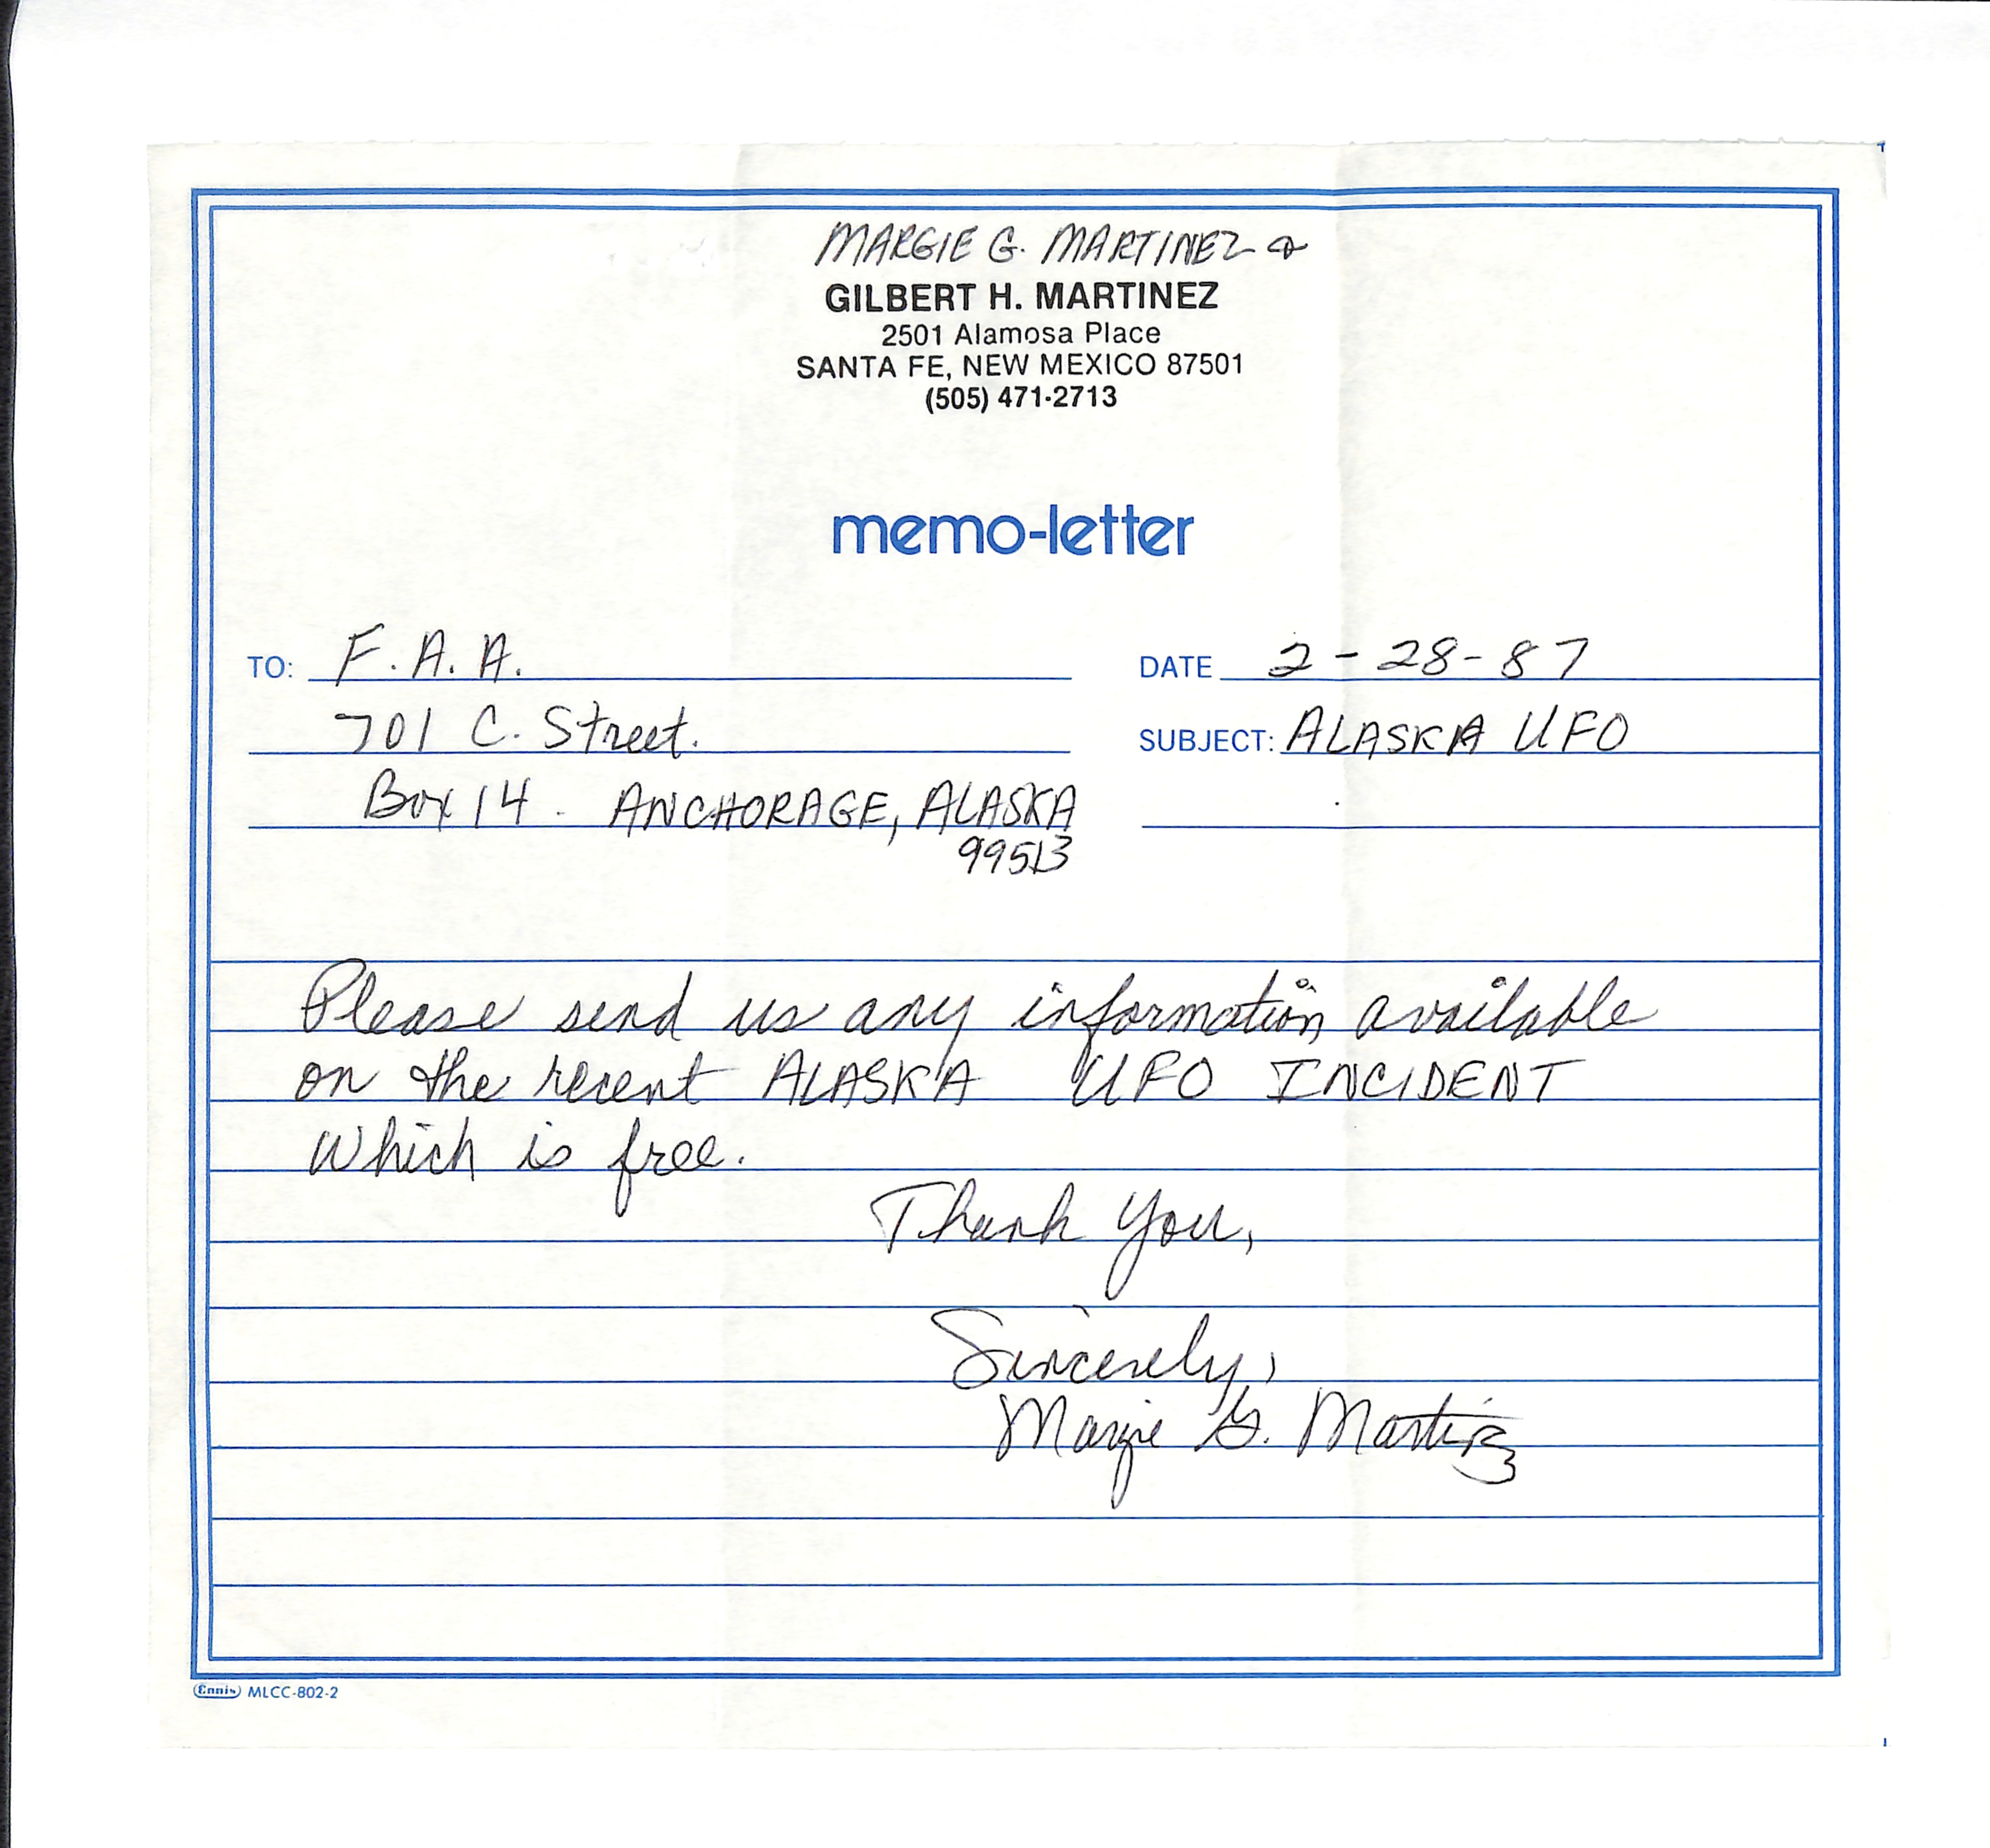 MARGIE G. MARTINEZ &
GILBERT H. MARTINEZ
2501 Alamosa Place
SANTA FE, NEW MEXICO 87501
(505) 471-2713
memo-letter
TO: F. A. A.
DATE 2-28-87
701 C. Street.
SUBJECT: ALASKA UFO
Box 14. ANCHORAGE, ALASKA
99513
Please send us any information available
on the recent ALASKA UFO INCIDENT
which is free.
Thank You,
Sincerely,
Margie G. Martinez
Ennis MLCC-802-2